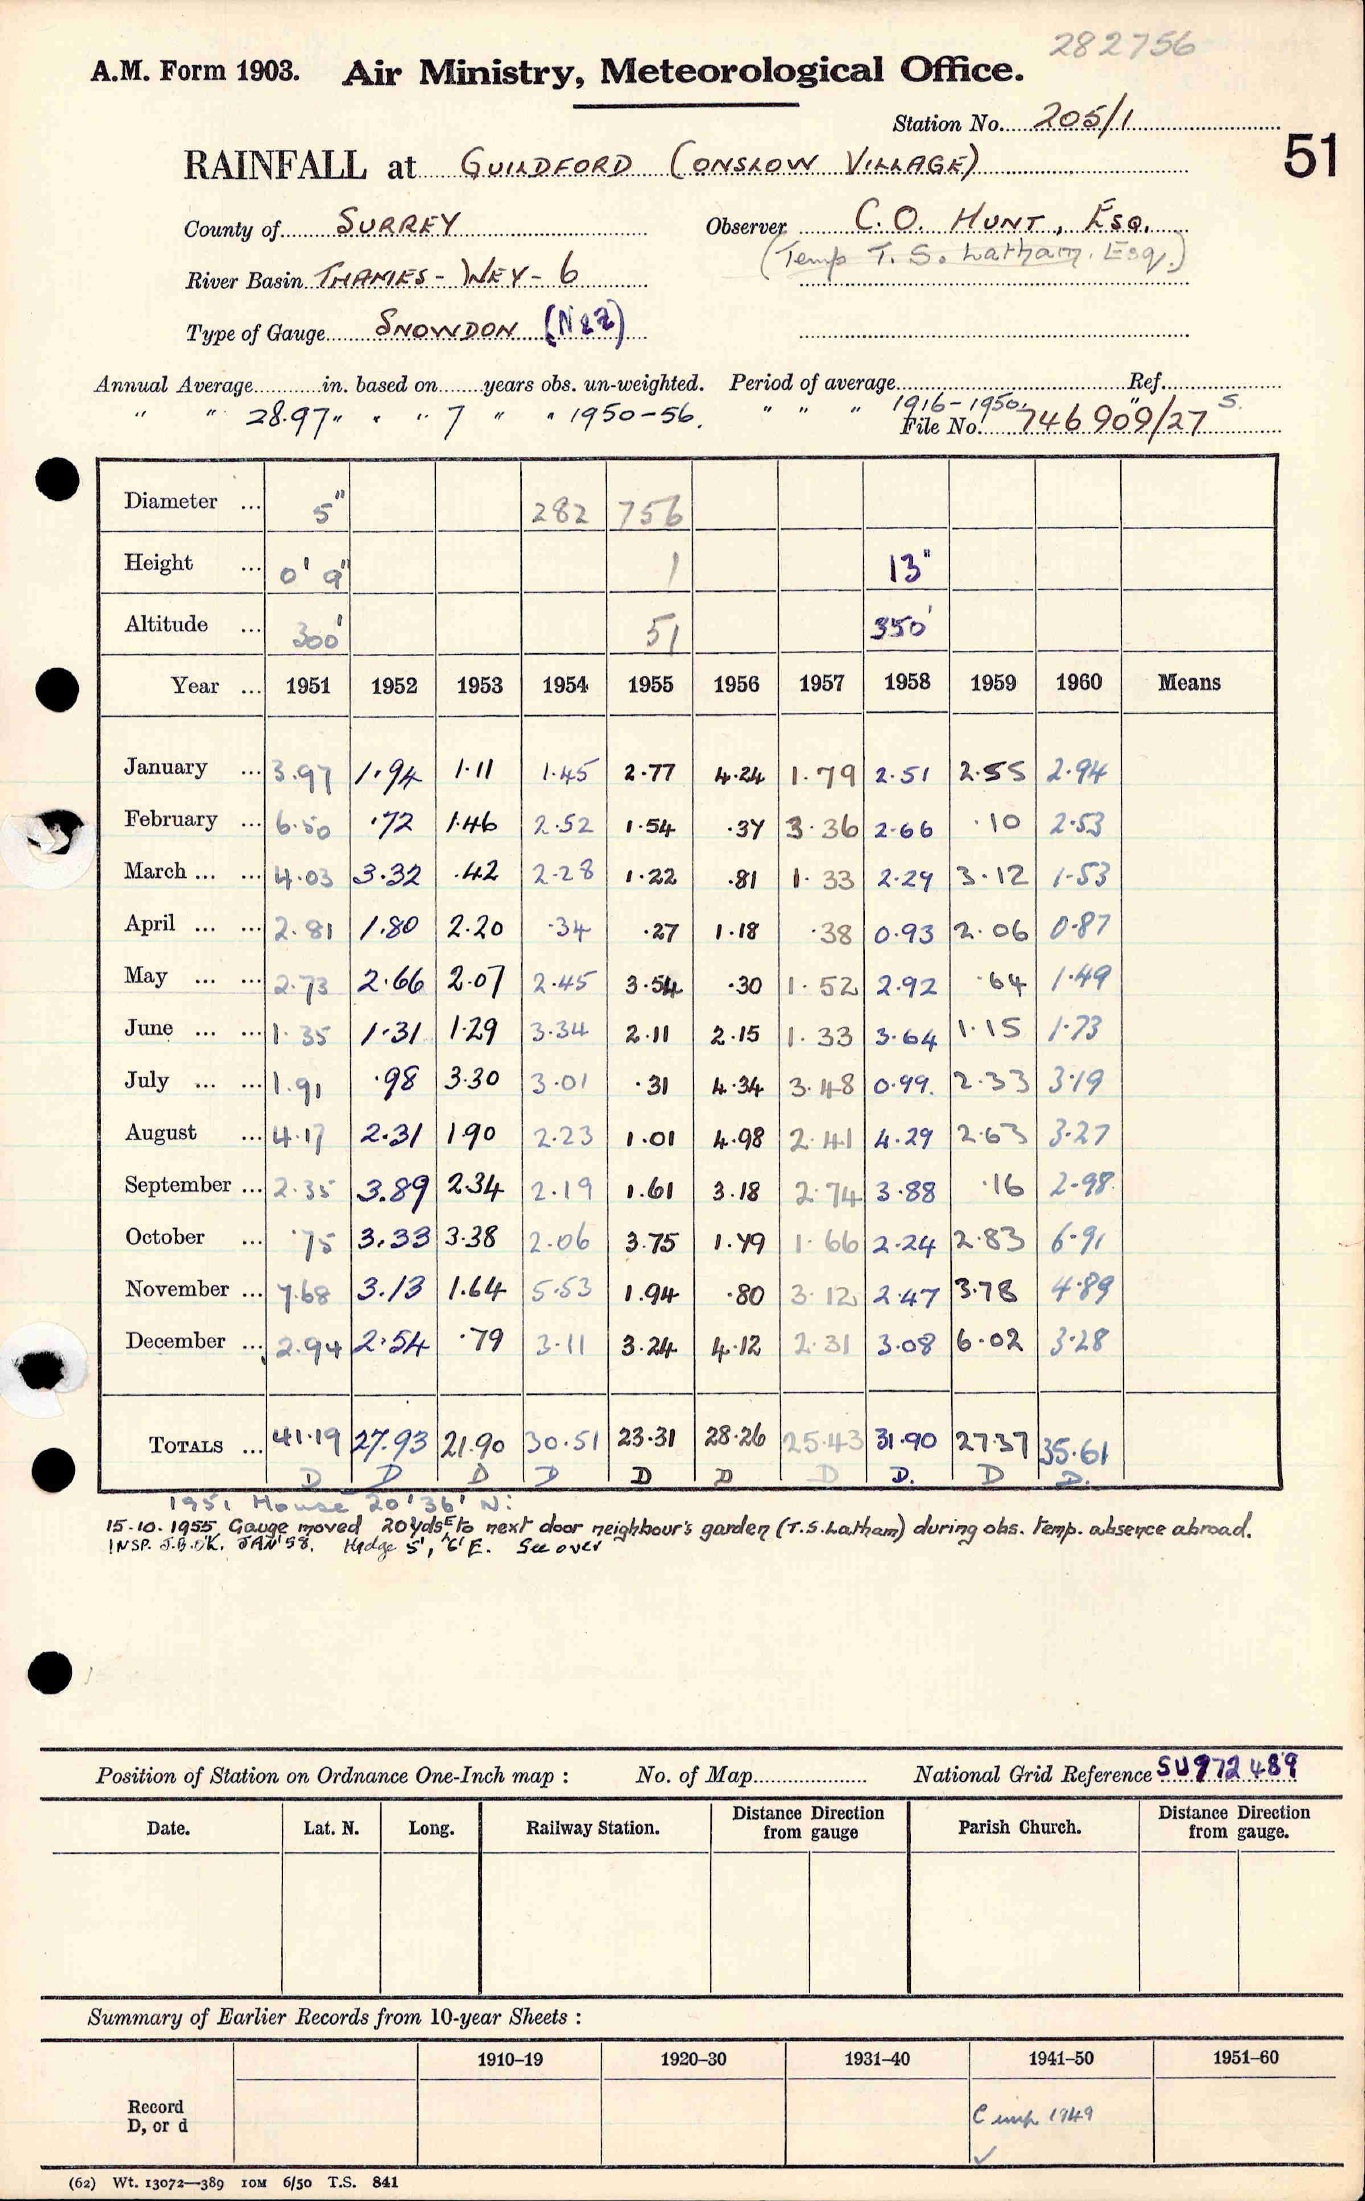 282756
A.M. Form 1903. Air Ministry, Meteorological Office.
Station No. 205/1
51
RAINFALL at GUILDFORD (ONSLOW VILLAGE)
County of SURREY Observer C.O. HUNT, ESQ.
(Temp T. S. Latham. Esq.)
River Basin THAMES - WEY - 6
Type of Gauge SNOWDON
Annual Average in. based on years obs. un-weighted. Period of average Ref.
" " 28.97 " " " 7 " " 1950-56. " " " 1916-1950. " S.
File No. 746909/27
Diameter ... 5" 282 756
Height ... 0' 9" 1 13"
Altitude ... 300' 51 350'
Year ... 1951 1952 1953 1954 1955 1956 1957 1958 1959 1960 Means
January ... 3.97 1.94 1.11 1.45 2.77 4.24 1.79 2.51 2.55 2.94
February ... 6.50 .72 1.46 2.52 1.54 .37 3.36 2.66 .10 2.53
March ... ... 4.03 3.32 .42 2.28 1.22 .81 1.33 2.29 3.12 1.53
April ... ... 2.81 1.80 2.20 .34 .27 1.18 .38 0.93 2.06 0.87
May ... ... 2.73 2.66 2.07 2.45 3.54 .30 1.52 2.92 .64 1.49
June ... ... 1.35 1.31 1.29 3.34 2.11 2.15 1.33 3.64 1.15 1.73
July ... ... 1.91 .98 3.30 3.01 .31 4.34 3.48 0.99. 2.33 3.19
August ... 4.17 2.31 1.90 2.23 1.01 4.98 2.41 4.29 2.63 3.27
September ... 2.35 3.89 2.34 2.19 1.61 3.18 2.74 3.88 .16 2.98
October ... .75 3.33 3.38 2.06 3.75 1.79 1.66 2.24 2.83 6.91
November ... 7.68 3.13 1.64 5.53 1.94 .80 3.12 2.47 3.78 4.89
December ... 2.94 2.54 .79 3.11 3.24 4.12 2.31 3.08 6.02 3.28
TOTALS ... 41.19 27.93 21.90 30.51 23.31 28.26 25.43 31.90 27.37 35.61
D D D D D D D D. D D.
1951 House 20' 36' N:
15.10.1955, Gauge moved 20yds E to next door neighbour's garden (T.S. Latham) during obs. temp. absence abroad.
INSP. J.G. O'K. JAN '58. Hedge 5', 6' E. See over
Position of Station on Ordnance One-Inch map : No. of Map National Grid Reference SU 972 489
Date. Lat. N. Long. Railway Station. Distance Direction from gauge Parish Church. Distance Direction from gauge.
Summary of Earlier Records from 10-year Sheets :
1910–19 1920–30 1931–40 1941–50 1951–60
Record
D, or d
1949
(62) Wt. 13072—389 10M 6/50 T.S. 841